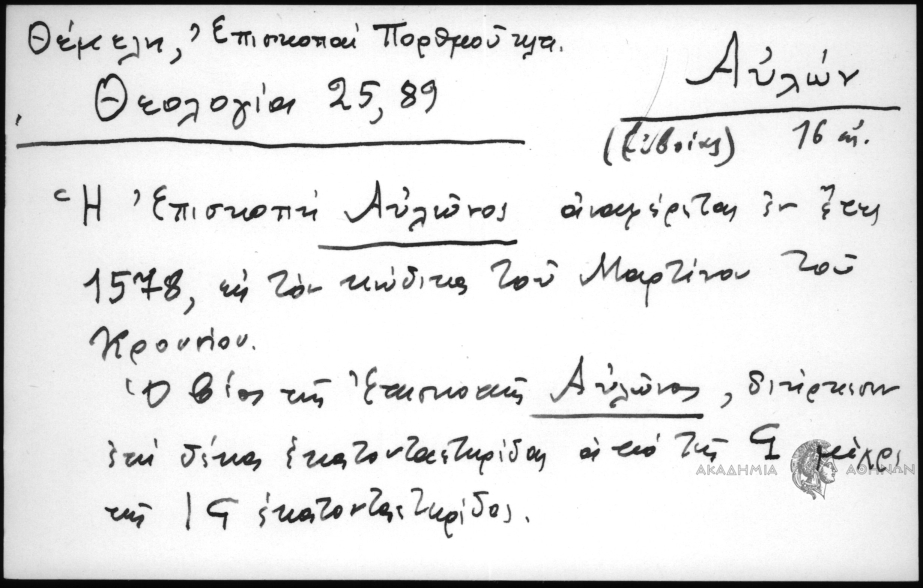 Θέμελη, Ἐπισκοπαί Πορθμοῦ κλπ.
Θεολογία 25, 89
Αὐλών
(Εὐβοίας) 16 αἰ.
Ἡ Ἐπισκοπή Αὐλῶνος ἀναφέρεται ἐν ἔτει
1578, εἰς τόν κώδικα τοῦ Μαρτίνου τοῦ
Κρουσίου.
Ὁ βίος τῆς Ἐπισκοπῆς Αὐλῶνος, διήρκεσεν
ἐπί δέκα ἑκατονταετηρίδας ἀπό τῆς Ϛ μέχρι
τῆς ΙϚ ἑκατονταετηρίδος.
ΑΚΑΔΗΜΙΑ ΑΘΗΝΩΝ